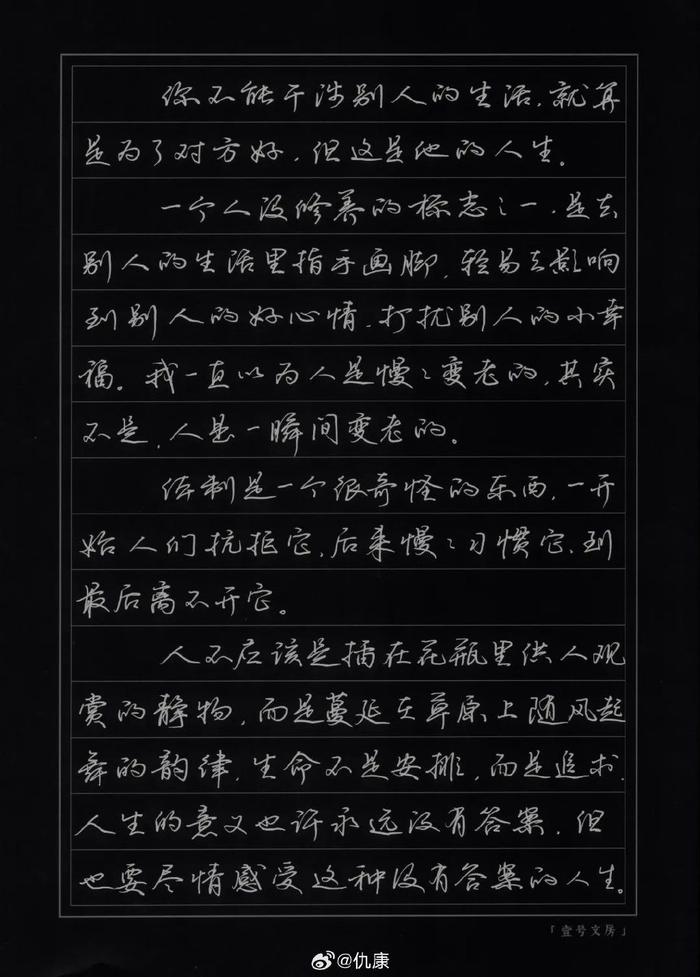 你不能干涉别人的生活，就算
是为了对方好，但这是他的人生。
一个人没修养的标志之一，是去
别人的生活里指手画脚，轻易去影响
到别人的好心情，打扰别人的小幸
福。我一直以为人是慢〻变老的，其实
不是，人是一瞬间变老的。
体制是一个很奇怪的东西，一开
始人们抗拒它，后来慢〻习惯它，到
最后离不开它。
人不应该是插在花瓶里供人观
赏的静物，而是蔓延在草原上随风起
舞的韵律，生命不是安排，而是追求，
人生的意义也许永远没有答案，但
也要尽情感受这种没有答案的人生。
「壹号文房」
@仇康